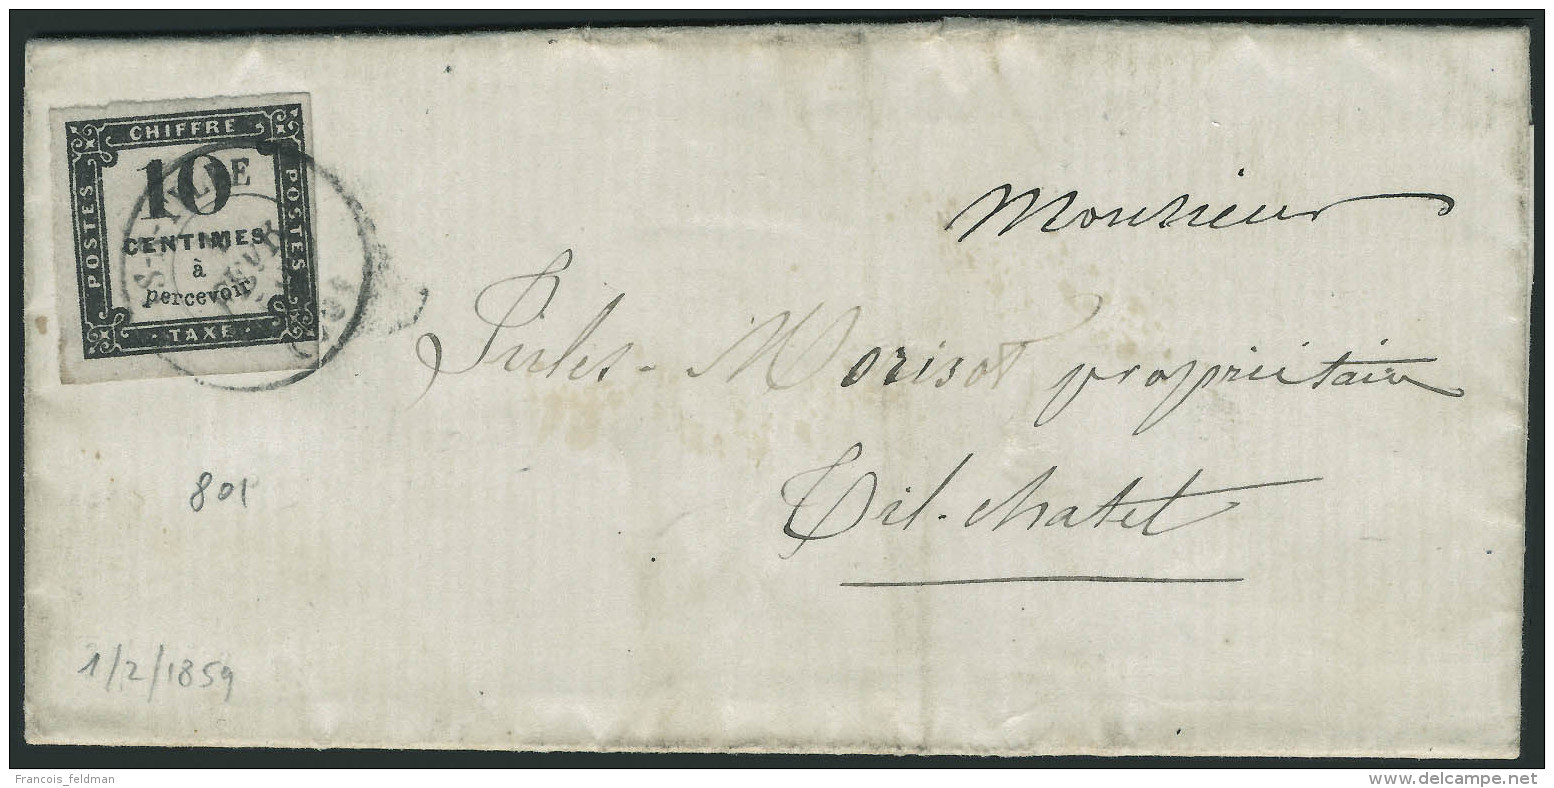 CHIFFRE
POSTES
POSTES
10
CENTIMES
à
percevoir
TAXE
Monsieur
Jules Morisot propriétaire
Til-Chatel
801
1/2/1859
Francois_feldman
www.delcampe.net